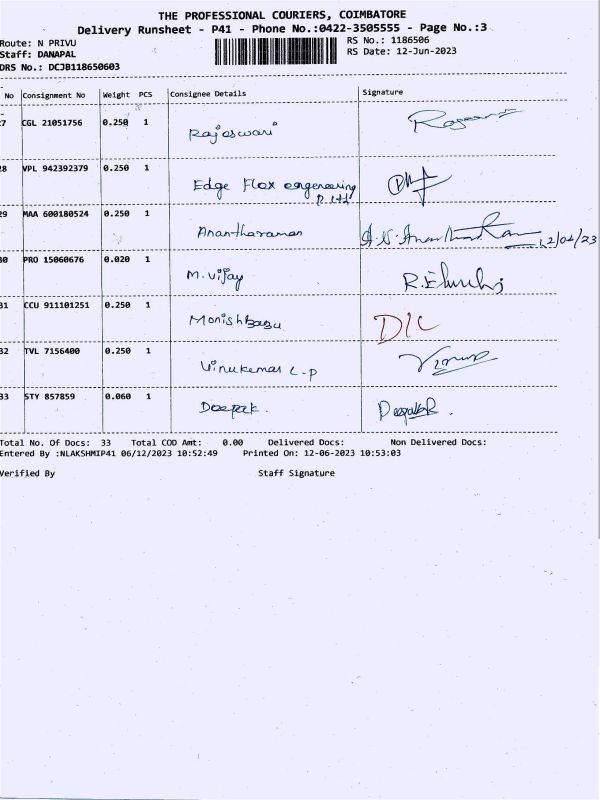 THE PROFESSIONAL COURIERS, COIMBATORE
Delivery Runsheet - P41 - Phone No.:0422-3505555 - Page No.:3
Route: N PRIVU
RS No.: 1186506
Staff: DANAPAL
RS Date: 12-Jun-2023
DRS No.: DCJB118650603
No Consignment No Weight PCS Consignee Details Signature
7 CGL 21051756 0.250 1 Rajeswari
8 VPL 942392379 0.250 1 Edge Flex engeneering
P. Ltd
29 MAA 600180524 0.250 1 Anantharaman
30 PRO 15060676 0.020 1 M. Vijay
31 CCU 911101251 0.250 1 Monish Babu D/C
32 TVL 7156400 0.250 1 Vinukemar L.P
33 STY 857859 0.060 1 Deepak. Deepak
Total No. Of Docs: 33 Total COD Amt: 0.00 Delivered Docs: Non Delivered Docs:
Entered By :NLAKSHMIP41 06/12/2023 10:52:49 Printed On: 12-06-2023 10:53:03
Verified By Staff Signature